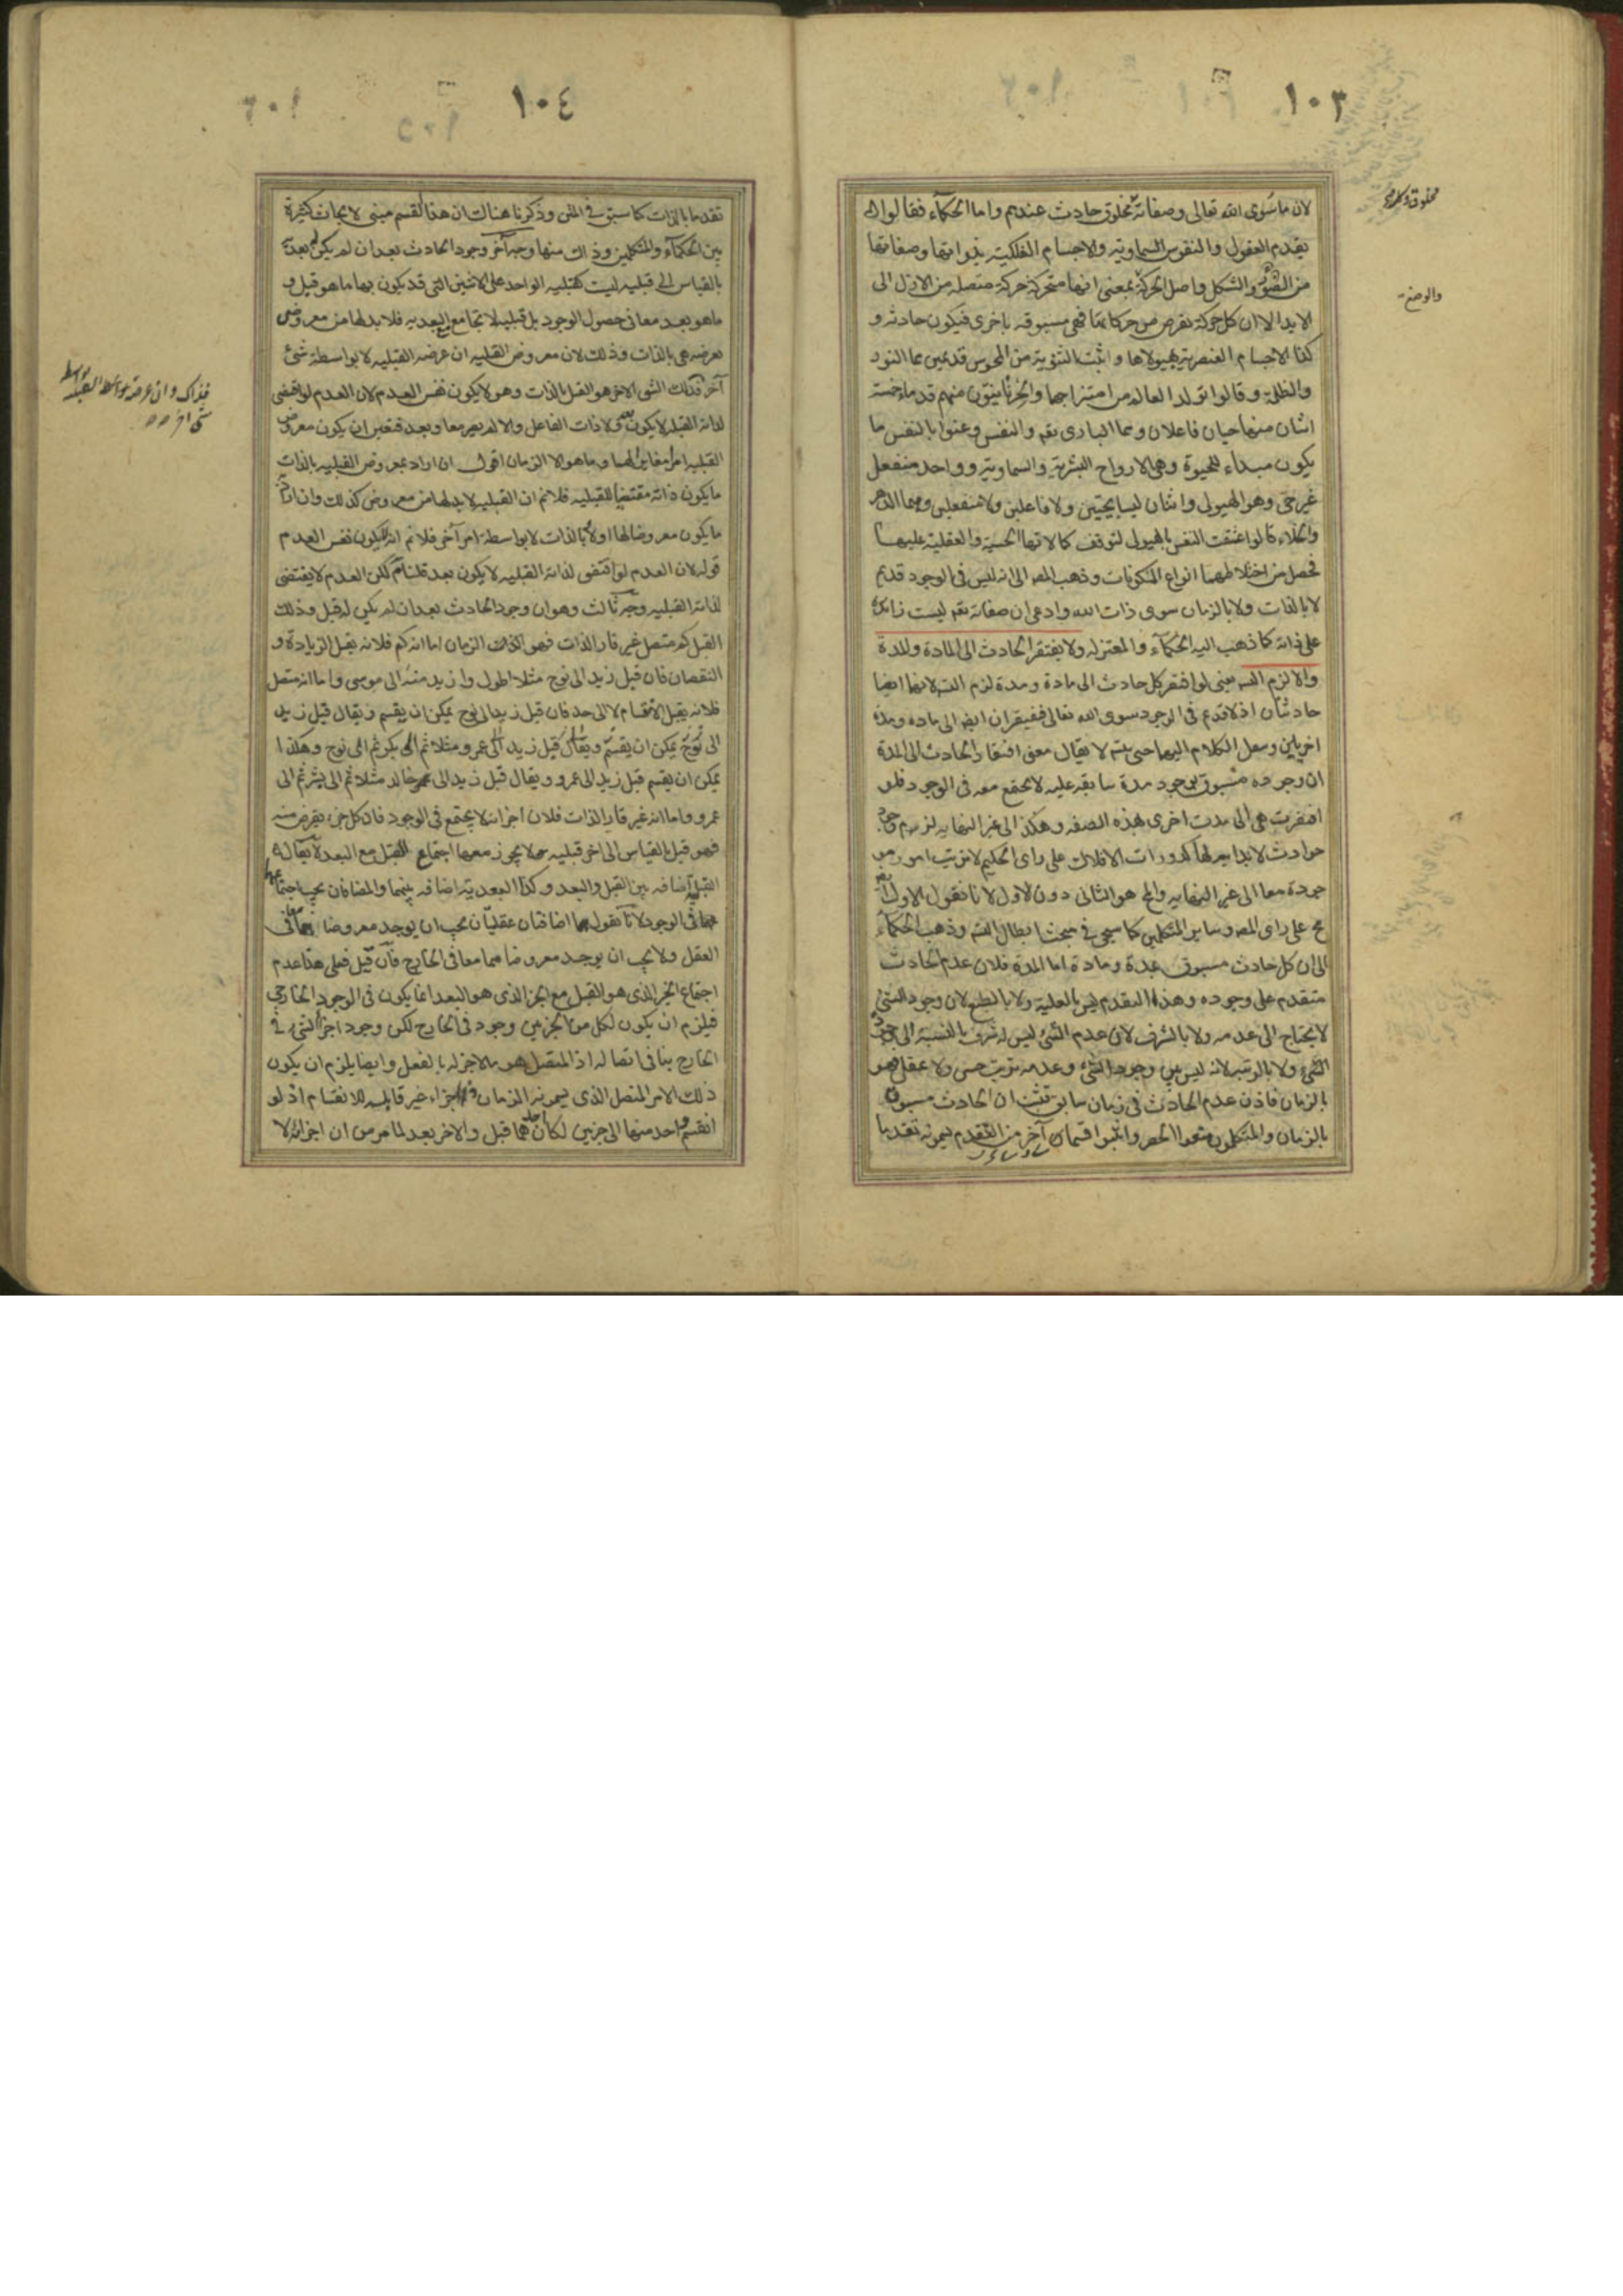 ١٠٣
لان ما سوى الله تعالى وصفاته مخلوق حادث عندهم واما الحكماء فقالوا
بقدم العقول والنفوس السماوية والاجسام الفلكية بذواتها وصفاتها
من الضوء والشكل واصل الحركة بمعنى انها متحركة حركة متصلة من الازل الى
الابد الا ان كل حركة تفرض من حركاتها فهى مسبوقه باخرى فيكون حادثه و
كذا الاجسام العنصرية بهيولاها واثبت الثنوية من المجوس قديمين هما النور
والظلمة وقالوا تولد العالم من امتزاجهما والحرنانيون منهم قدماء خمسة
اثنان منها حيان فاعلان وهما البارى تعم والنفس وعنوا بالنفس ما
يكون مبداء للحيوة وهى الارواح البشرية والسماوية وواحد منفعل
غير حى وهو الهيولى واثنان ليسا بحيين ولا فاعلين ولا منفعلين وهما الدهر
والخلاء قالوا عشقت النفس بالهيولى لتوقف كمالاتها الحسية والعقلية عليها
فحصل من اختلاطهما انواع المكونات وذهب المص الى انه ليس فى الوجود قديم
لا بالذات ولا بالزمان سوى ذات الله وادعى ان صفاته تعم ليست زائدة
على ذاته كما ذهب اليه الحكماء والمعتزله ولا يفتقر الحادث الى المادة والمدة
والا لزم التسه يعنى لو افتقر كل حادث الى مادة ومدة لزم التسه لانهما ايضا
حادثتان اذ لا قديم فى الوجود سوى الله تعالى فيفتقران ايضا الى ماده ومدة
اخريين وينقل الكلام اليهما حتى يتسه لا يقال معنى افتقار الحادث الى المدة
ان وجوده مسبوق بوجود مدة سابقه عليه لا يجتمع معه فى الوجود فلو
افتقرت هى الى مدت اخرى بهذه الصفه وهكذا الى غير النهايه لزم وجود
حوادث لا بداية لها كدورات الافلاك على راى الحكيم لا ترتيب امور مو
جودة معا الى غير النهايه والمح هو الثانى دون الاول لانا نقول الاول ايضا
مح على راى المص وساير المتكلمين كما سيجى فى مبحث ابطال التسه وذهب الحكماء
الى ان كل حادث مسبوق بمدة ومادة اما المدة فلان عدم الحادث
متقدم على وجوده وهذا التقدم ليس بالعلية ولا بالطبع لان وجود الشئ
لا يحتاج الى عدمه ولا بالشرف لان عدم الشئ ليس له شرف بالنسبة الى وجود
الشئ ولا بالرتبه لانه ليس بين وجود الشئ وعدمه ترتيب حسى ولا عقلى فهو
بالزمان فاذن عدم الحادث فى زمان سابق فثبت ان الحادث مسبوق
بالزمان والمتكلمون منعوا الحصر واثبتوا قسما آخر من التقدم يسمونه تقدما
والوضع
١٠٤
تقدما بالذات كما سبق فى المتن وذكرنا هناك ان هذا القسم مبنى لابحاث كثيرة
بين الحكماء والمتكلمين وذاك منها وجه آخر وجود الحادث بعد ان لم يكن له بعدية
بالقياس الى قبليه ليست كقبليه الواحد على الاثنين التى قد يكون بها ما هو قبل و
ما هو بعد معا فى حصول الوجود بل قبلية لا تجامع البعديه فلا بد لها من معروض
تعرضه هى بالذات وذلك لان معروض القبليه ان عرضه القبليه لا بواسطة شئ
آخر فذلك الشئ الاخر هو القبل بالذات وهو لا يكون نفس العدم لان العدم لو اقتضى
لذاته القبليه لا يكون بعد ولا ذات الفاعل والا لم يصر معا وبعد فتعين ان يكون معروض
القبليه امرا مغايرا لهما وما هو الا الزمان اقول ان اراد بمعروض القبليه بالذات
ما يكون ذاته مقتضيا للقبليه فلا نم ان القبليه لا بد لها من معروض كذلك وان اراد
ما يكون معروضا لها اولا بالذات لا بواسطة امر آخر فلا نم انه لا يكون نفس العدم
قوله لان العدم لو اقتضى لذاته القبليه لا يكون بعد قلنا نعم لكن العدم لا يقتضى
لذاته القبليه وجه ثالث وهو ان وجود الحادث بعد ان لم يكن له قبل وذلك
القبل كم متصل غير قار الذات فهو اذن الزمان اما انه كم فلانه يقبل الزيادة و
النقصان فان قبل زيد الى نوح مثلا اطول وازيد منه الى موسى واما انه متصل
فلانه يقبل الانقسام لا الى حد فان قبل زيد الى نوح يمكن ان يقسم ويقال قبل زيد
الى نوح يمكن ان يقسم ويقال قبل زيد الى عمرو مثلا ثم الى بكر ثم الى نوح وهكذا
يمكن ان يقسم قبل زيد الى عمرو ويقال قبل زيد الى خالد مثلا ثم الى بشر ثم الى
عمرو واما انه غير قار الذات فلان اجزائه لا يجتمع فى الوجود فان كل جزء يفرض منه
فهو قبل بالقياس الى اخر قبليه لا يجوز معها اجتماع القبل مع البعد لا يقال
القبلية اضافه بين القبل والبعد وكذا البعدية اضافه بينهما والمضافان يجب اجتماعهما
فى الوجود لانا نقول هما اضافتان عقليتان يجب ان يوجد معروضاهما فى
العقل ولا يجب ان يوجد معروضاهما معا فى الخارج فان قيل فعلى هذا عدم
اجتماع الجزء الذى هو القبل مع الجزء الذى هو البعد انما يكون فى الوجود الخارجى
فيلزم ان يكون لكل من الجزءين وجود فى الخارج لكن وجود اجزاء الشئ فى
الخارج ينافى اتصاله اذ المتصل هو ما لا جزء له بالفعل وايضا يلزم ان يكون
ذلك الامر المتصل الذى يسمونه الزمان ذا اجزاء غير قابله للانقسام اذ لو
انقسم واحد منها الى جزءين لكان احدهما قبل والاخر بعد لما مر من ان اجزائه لا